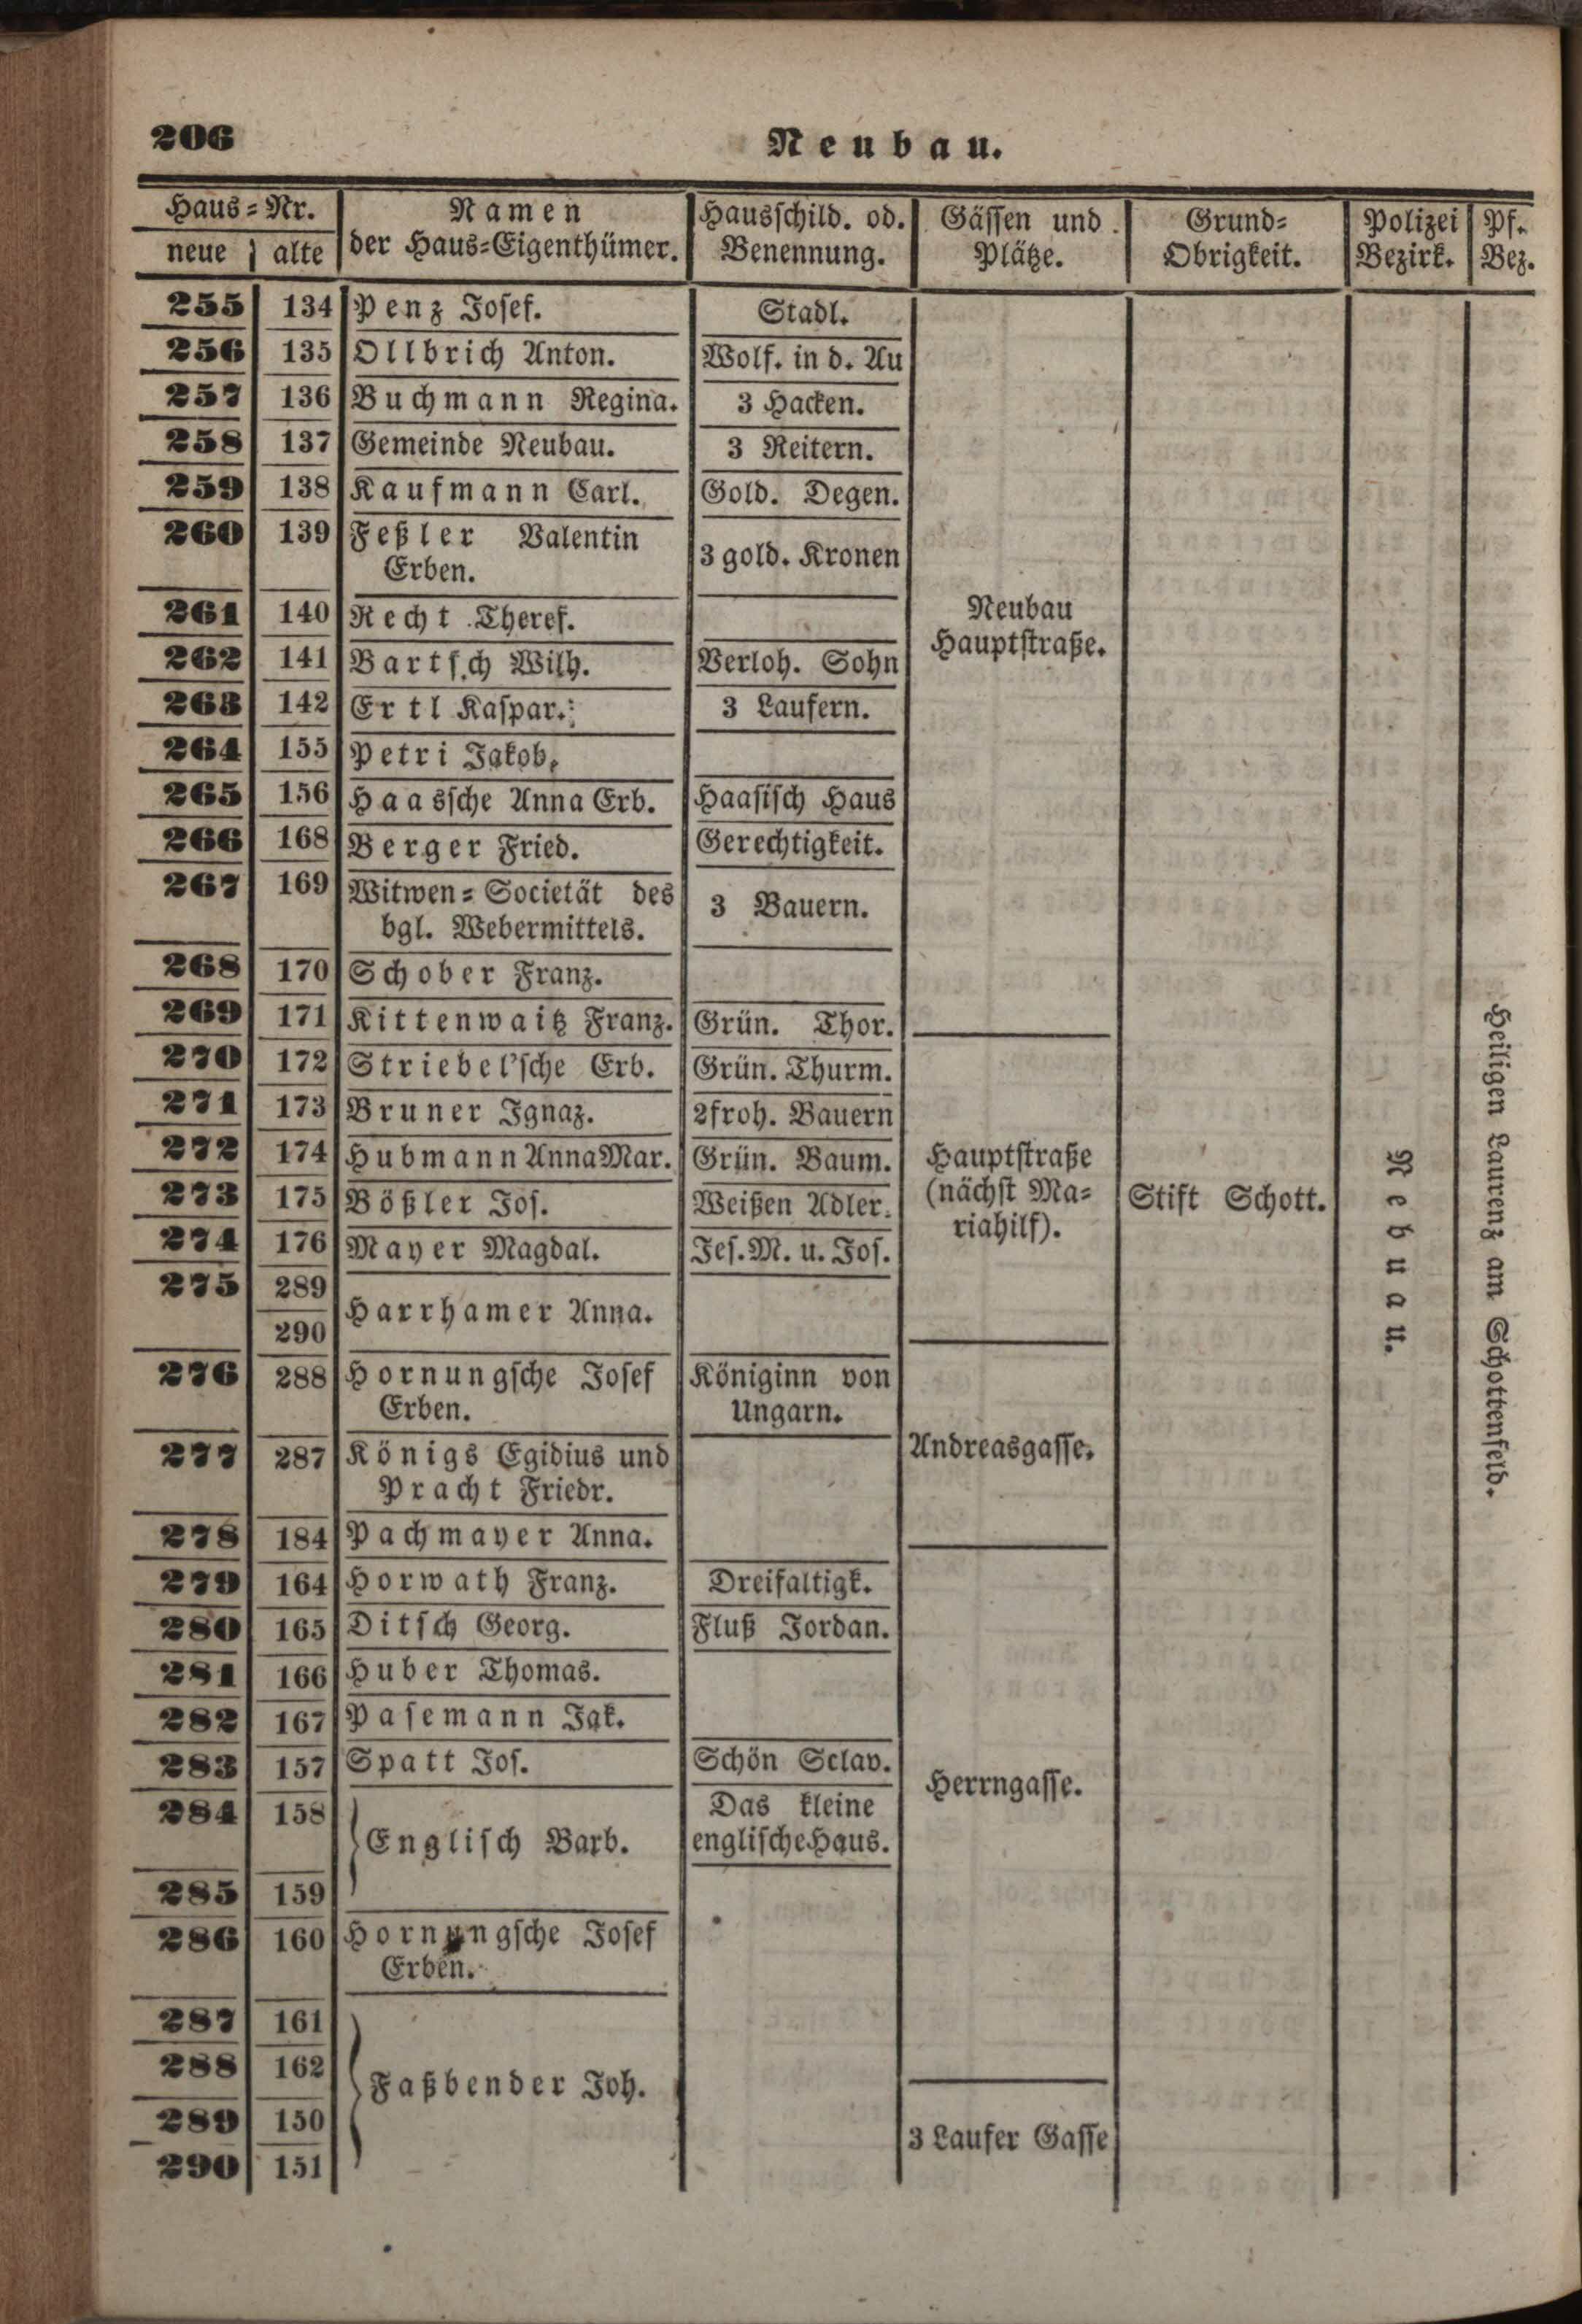 206
Neubau.
Haus-Nr.
neue | alte
Namen
der Haus-Eigenthümer.
Hausschild. od.
Benennung.
Gässen und
Plätze.
Grund-
Obrigkeit.
Polizei
Bezirk.
Pf.
Bez.
255 134 Penz Josef. Stadl.
256 135 Ollbrich Anton. Wolf. in d. Au
257 136 Buchmann Regina. 3 Hacken.
258 137 Gemeinde Neubau. 3 Reitern.
259 138 Kaufmann Carl. Gold. Degen.
260 139 Feßler Valentin
Erben.
3 gold. Kronen
261 140 Recht Theres.
262 141 Bartsch Wilh. Verloh. Sohn
263 142 Ertl Kaspar. 3 Laufern.
264 155 Petri Jakob.
265 156 Haassche Anna Erb. Haasisch Haus
266 168 Berger Fried. Gerechtigkeit.
267 169 Witwen-Societät des
bgl. Webermittels.
3 Bauern.
268 170 Schober Franz.
269 171 Kittenwaitz Franz. Grün. Thor.
Neubau
Hauptstraße.
270 172 Striebel'sche Erb. Grün. Thurm.
271 173 Bruner Ignaz. 2froh. Bauern
272 174 Hubmann Anna Mar. Grün. Baum.
273 175 Bößler Jos. Weißen Adler.
274 176 Mayer Magdal. Jes. M. u. Jos.
275 289
290
Harrhamer Anna.
Hauptstraße
(nächst Ma-
riahilf).
276 288 Hornungsche Josef
Erben.
Königinn von
Ungarn.
277 287 Königs Egidius und
Pracht Friedr.
278 184 Pachmayer Anna.
Andreasgasse.
279 164 Horwath Franz. Dreifaltigk.
280 165 Ditsch Georg. Fluß Jordan.
281 166 Huber Thomas.
282 167 Pasemann Jak.
283 157 Spatt Jos. Schön Sclav.
284 158
Englisch Barb.
Das kleine
englische Haus.
285 159
286 160 Hornungsche Josef
Erben.
Herrngasse.
287 161
288 162
Faßbender Joh.
289 150
290 151
3 Laufer Gasse
Stift Schott.
Nebuau.
Heiligen Laurenz am Schottenfeld.